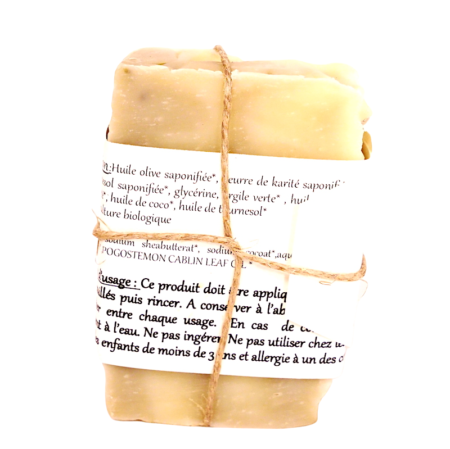 Huile olive saponifiée*, beurre de karité saponifi
sol saponifiée*, glycérine, argile verte* , huil
huile de coco*, huile de tournesol*
ture biologique
sodium sheabutterat*, sodium cocoat*, aqu
POGOSTEMON CABLIN LEAF OIL *
usage : Ce produit doit être appliq
llés puis rincer. A conserver à l'ab
entre chaque usage. En cas de
t à l'eau. Ne pas ingérer. Ne pas utiliser chez
enfants de moins de 3 ans et allergie à un des